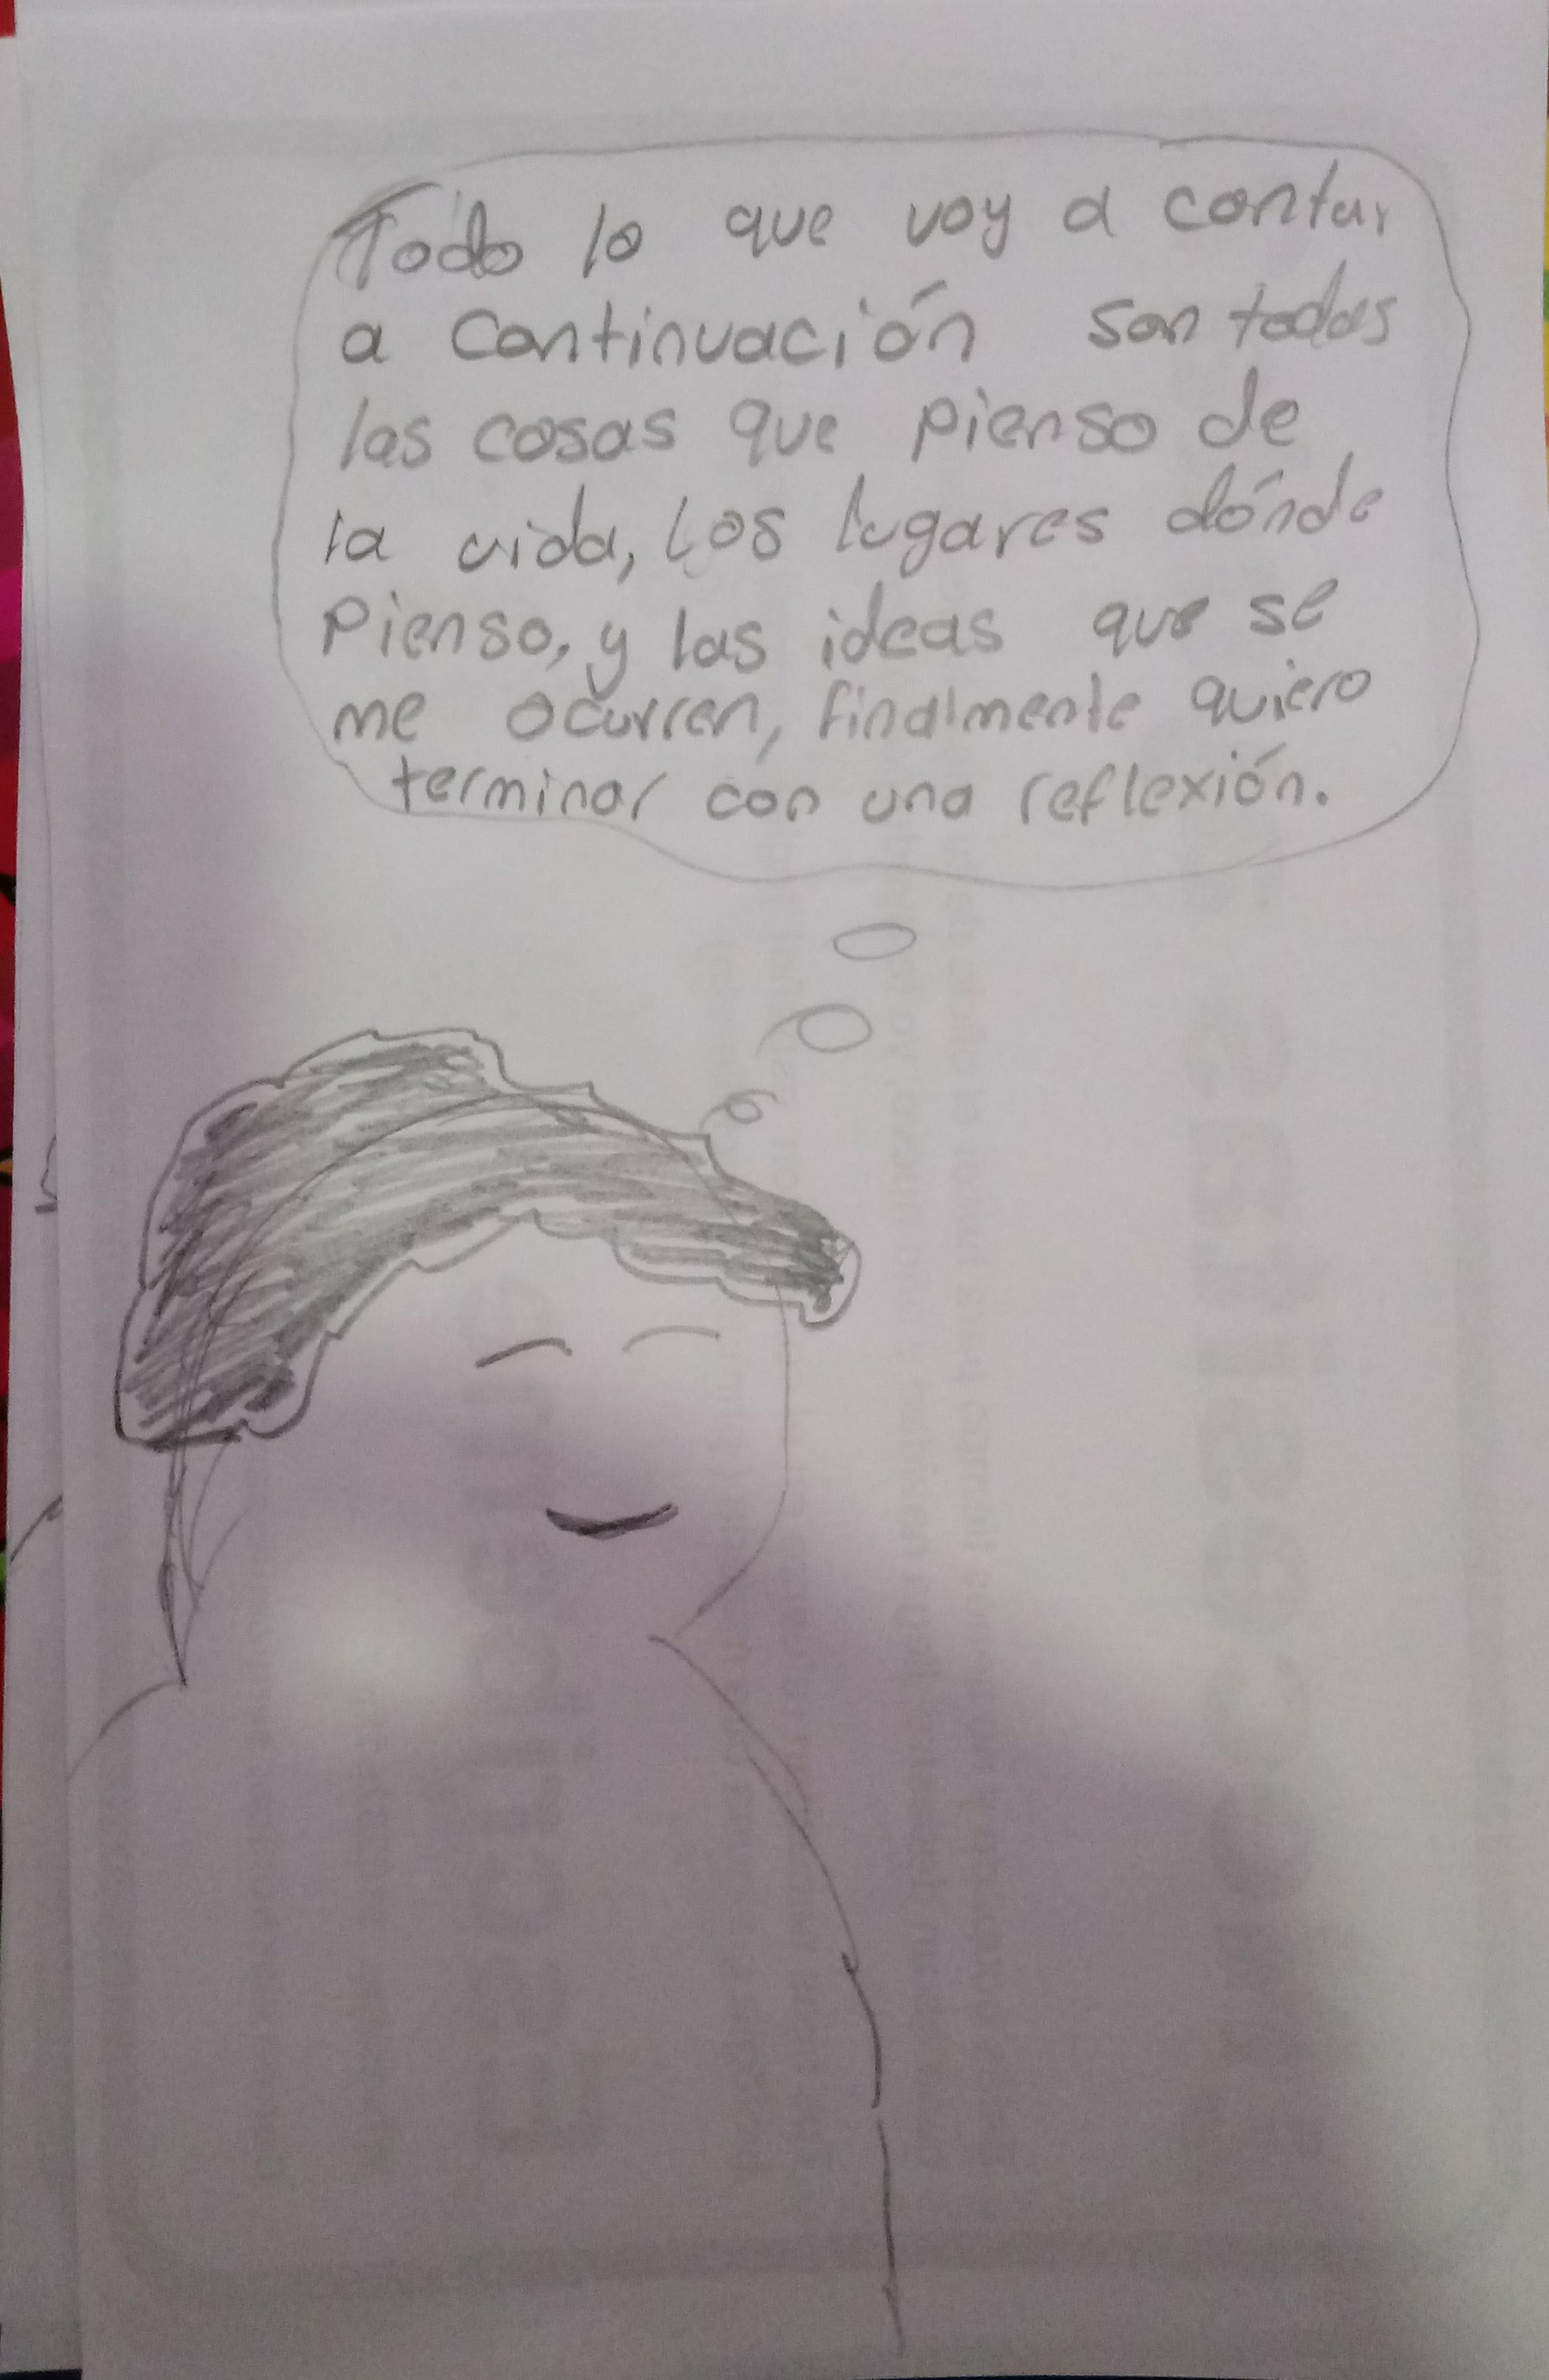 Todo lo que voy a contar
a continuación son todas
las cosas que pienso de
la vida, Los lugares dónde
Pienso, y las ideas que se
me ocurren, finalmente quiero
terminar con una reflexión.